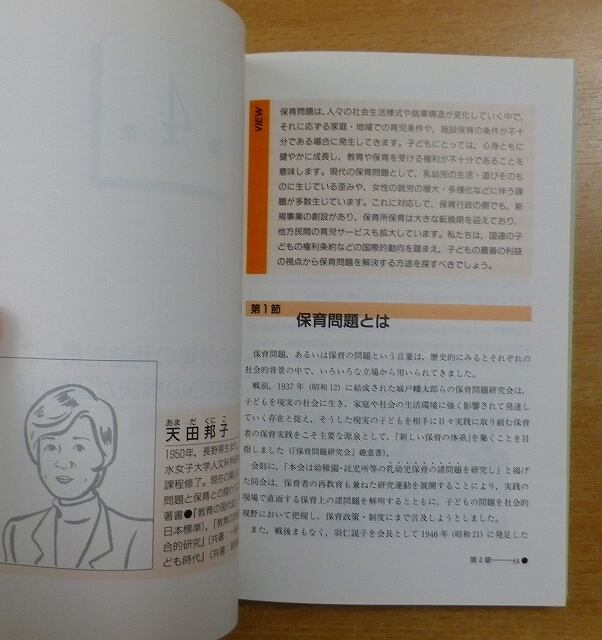 4
あまだくにこ
天田邦子
1950年、長野県生ま
水女子大学人文科学
課程修了。現在の
問題と保育との関
著書●『教育の現代史
日本標準)、『教育の
合的研究』(共著
ども時代』(共著
VIEW
保育問題は、人々の社会生活様式や就業構造が変化していく中で、
それに応ずる家庭・地域での育児条件や、施設保育の条件が不十
分である場合に発生してきます。子どもにとっては、心身ともに
健やかに成長し、教育や保育を受ける権利が不十分であることを
意味します。現代の保育問題として、乳幼児の生活・遊びそのも
のに生じている歪みや、女性の就労の増大・多様化などに伴う課
題が多数生じています。これに対応して、保育行政の側でも、新
規事業の創設があり、保育所保育は大きな転換期を迎えており、
他方民間の育児サービスも拡大しています。私たちは、国連の子
どもの権利条約などの国際的動向を踏まえ、子どもの最善の利益
の視点から保育問題を解決する方途を探すべきでしょう。
第1節
保育問題とは
保育問題、あるいは保育の問題という言葉は、歴史的にみるとそれぞれの
社会的背景の中で、いろいろな立場から用いられてきました。
戦前、1937年(昭和12)に結成された城戸幡太郎らの保育問題研究会は、
子どもを現実の社会に生き、家庭や社会の生活環境に強く影響されて発達し
ていく存在と捉え、そうした現実の子どもを相手に日々実践に取り組む保育
者の保育実践をこそ主要な源泉として、「新しい保育の体系」を築くことを目
指しました(『保育問題研究会』趣意書)。
会則に、「本会は幼稚園・託児所等の乳幼児保育の諸問題を研究し」と掲げ
た同会は、保育者の再教育も兼ねた研究運動を展開することにより、実践の
現場で直面する保育上の諸問題を解明するとともに、子どもの問題を社会的
視野において把握し、保育政策・制度にまで言及しようとしました。
また、戦後まもなく、羽仁説子を会長として1946年(昭和21)に発足した
第4章――55●